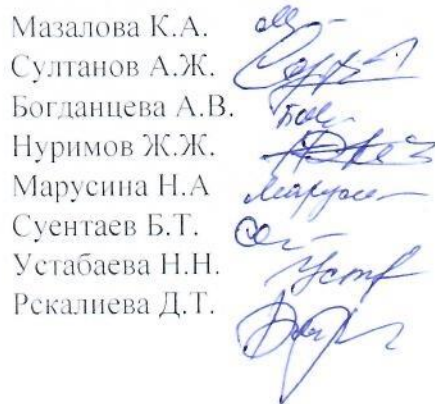 Мазалова К.А.
Султанов А.Ж.
Богданцева А.В.
Нуримов Ж.Ж.
Марусина Н.А
Суентаев Б.Т.
Устабаева Н.Н.
Рскалиева Д.Т.